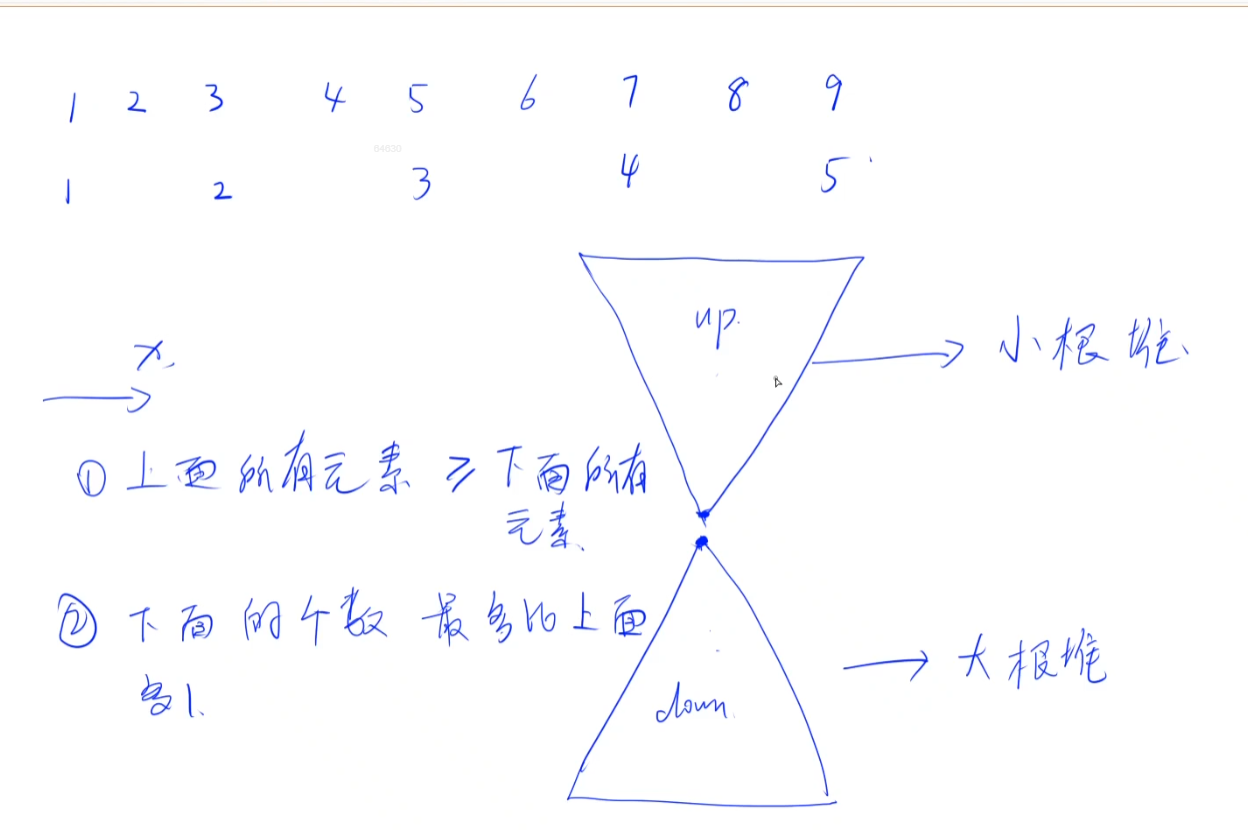 1 2 3 4 5 6 7 8 9
64630
1 2 3 4 5
up.
x.
小根堆
① 上面所有元素 ≥ 下面所有
元素.
② 下面的个数 最多比上面
多1.
大根堆
down.